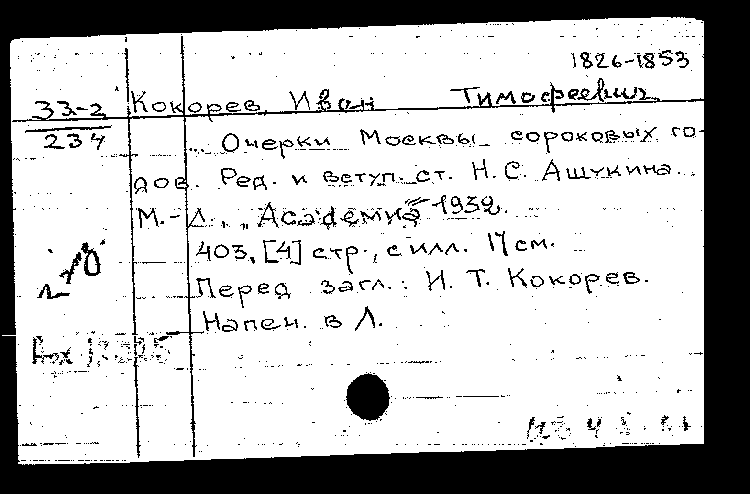 1826-1853
33-2
234
Кокорев, Иван Тимофеевич
... Очерки Москвы сороковых го-
дов. Ред. и вступ. ст. Н. С. Ашукина...
М.-Л., "Academia" 1932.
403, [4] стр., с илл. 17 см.
Перед загл.: И. Т. Кокорев.
Напеч. в Л.